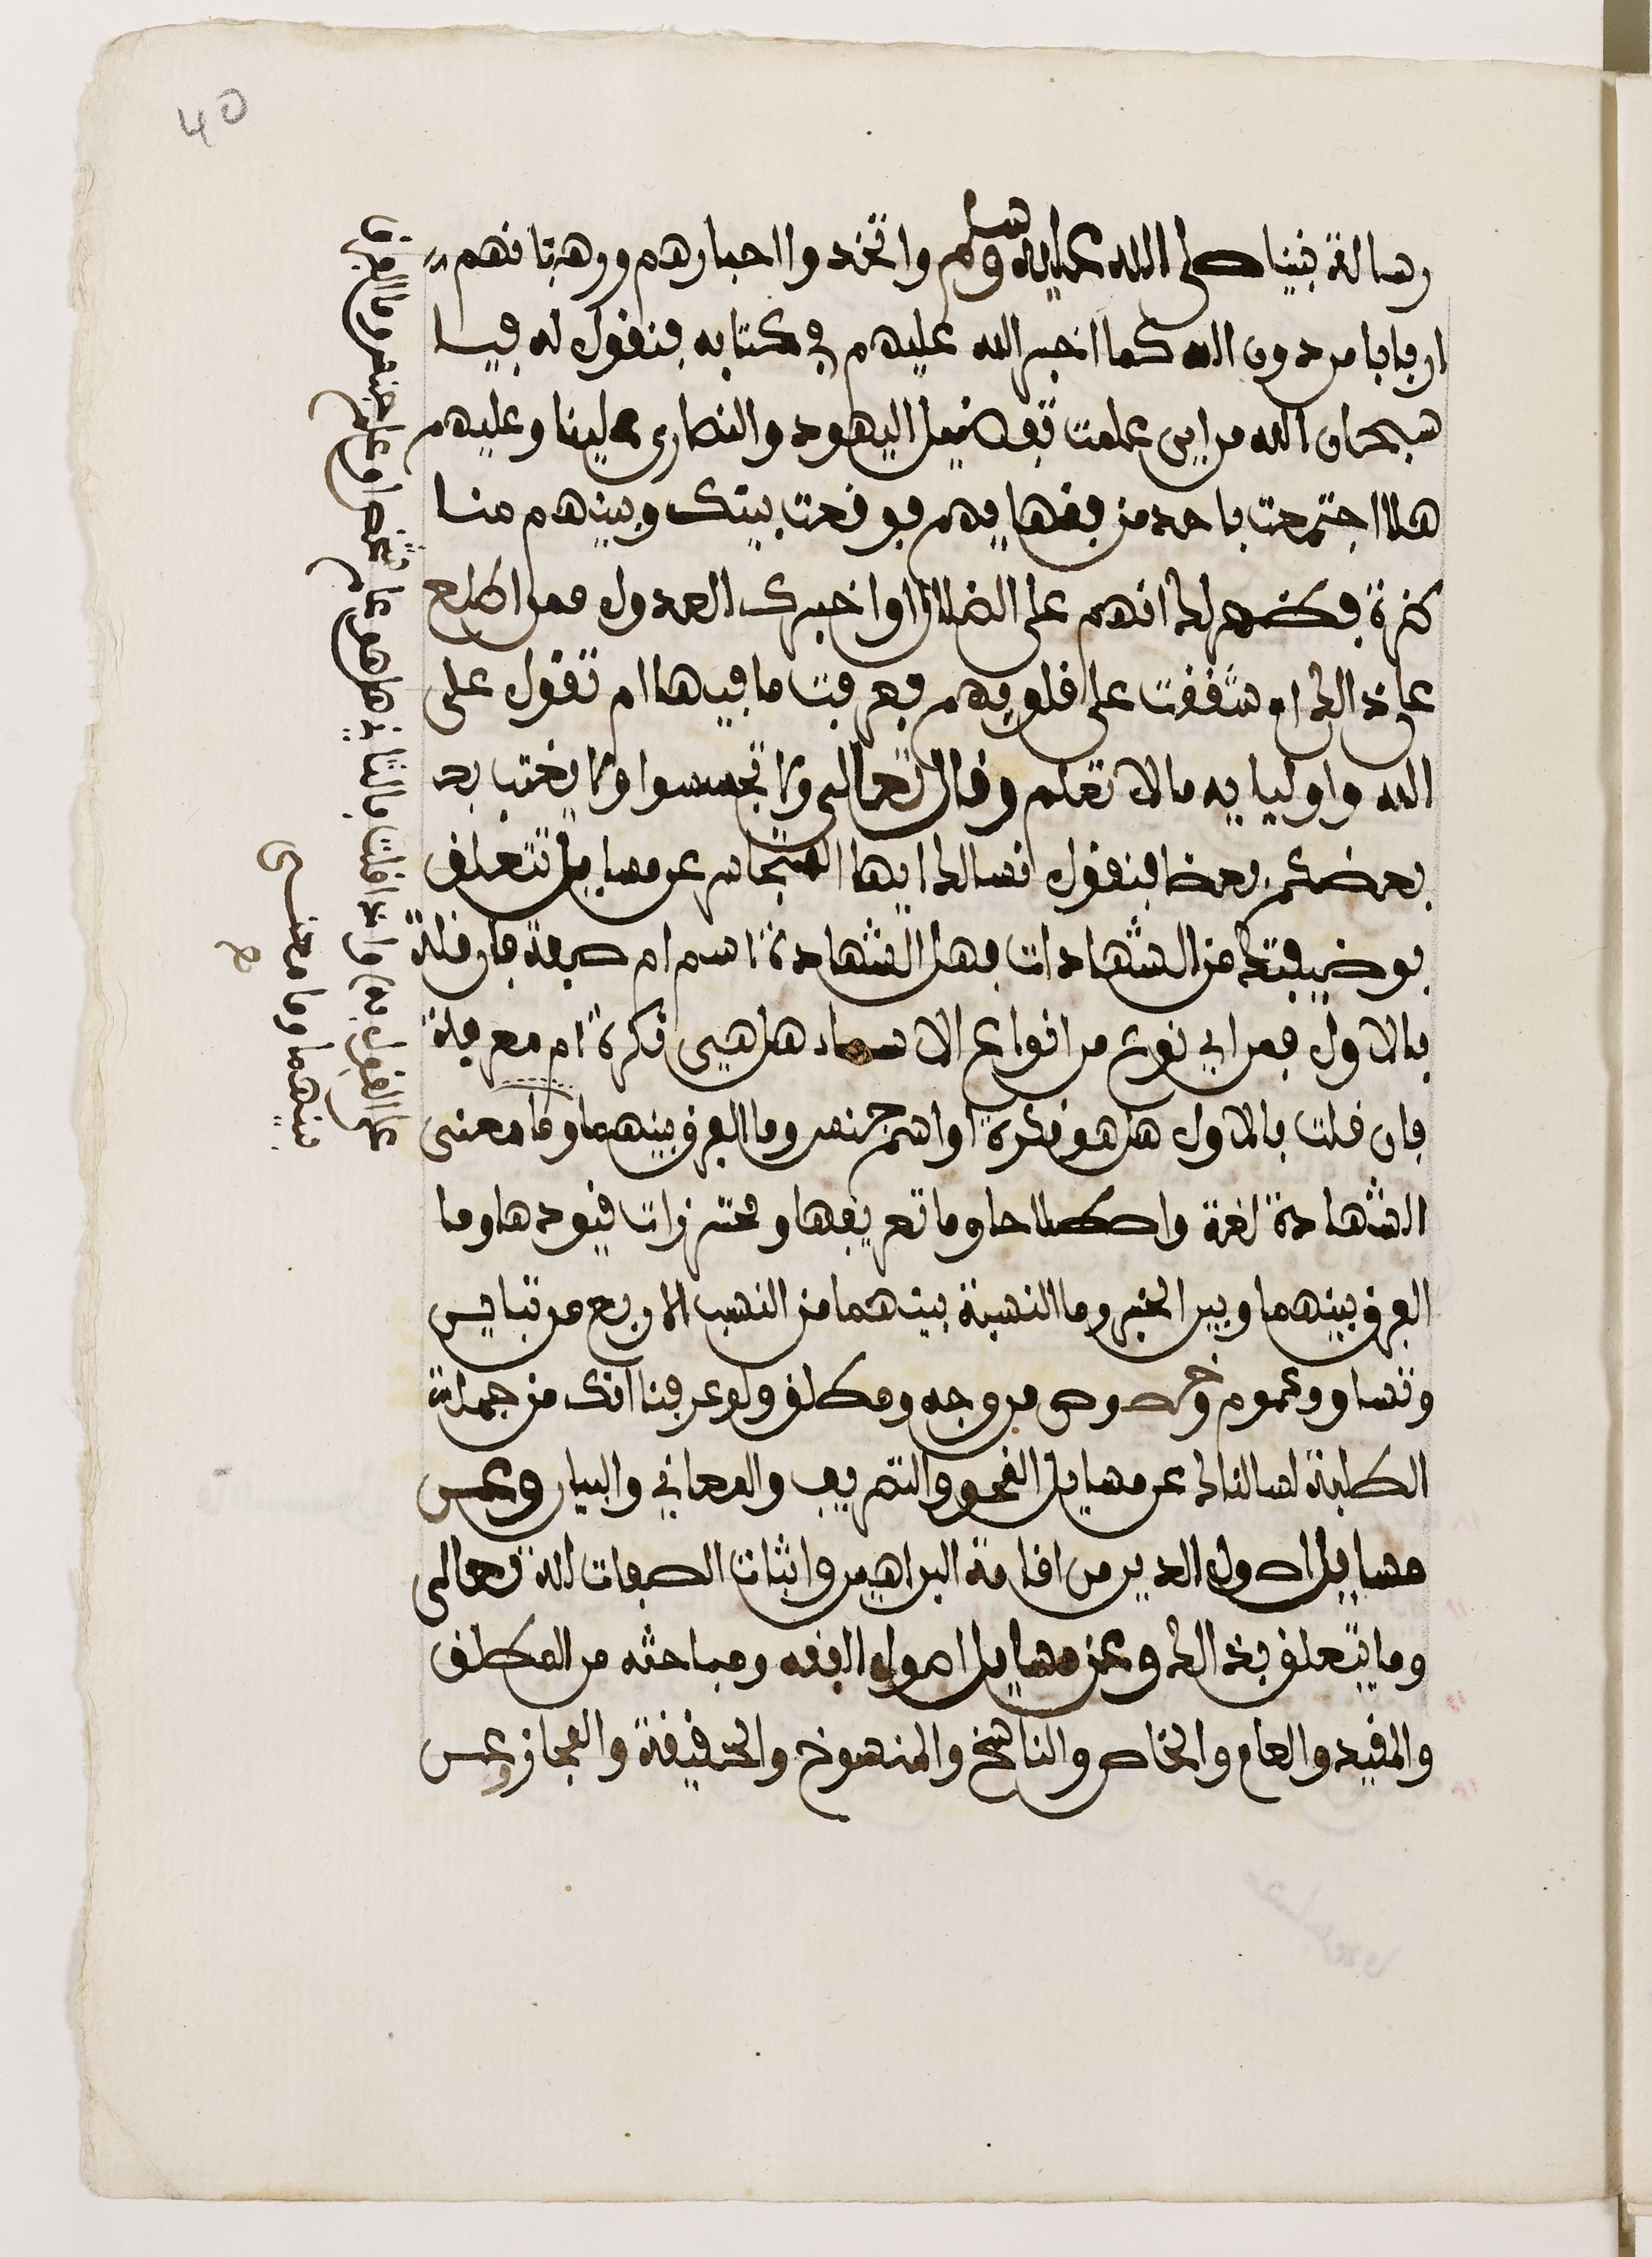 40
رسالة نبينا صلى الله عليه وسلم واتخذوا احبارهم ورهبانهم
اربابا من دون الله كما اخبر الله عليهم في كتابه فنقول له فيا
سبحان الله من اين علمت تفضيل اليهود والنصارى علينا وعليهم
هلا اجتمعت باحد من فقهايهم فوقعت بينك وبينهم منا
كرة فظهر لك انهم على الضلال او اخبرك العدول ممن اطلع
على ذالك ام شققت على قلوبهم فعرفت ما فيها ام تقول على
الله واوليايه ما لا تعلم وقال تعالى ولا تجسسوا ولا يغتب بعـ
بعضكم بعضا فنقول نسالك ايها المتجاسر عن مسايل تتعلق
بوضيفتك من الشهادات فهل الشهادة اسم ام صفة فان قلت
بالاول فمن اي نوع من انواع الاسماء هل هي نكرة ام معرفة
فان قلت بالاول هل هو نكرة او اسم جنس وما الفرق بينهما وما معنى
الشهادة لغة واصطلاحا وما تعريفها ومحترزات قيودها وما
الفرق بينهما وبين الخبر وما النسبة بينهما من النسب الاربع من تباين
وتساو وعموم وخصوص من وجه ومطلق ولو عرفنا انك من جملة
الطلبة لسالناك عن مسايل النحو والتصريف والمعاني والبيان وعن
مسايل اصول الدين من اقامة البراهين واثبات الصفات لله تعالى
وما يتعلق بذالك وعن مسايل اصول الفقه ومباحثه من المطلق
والمقيد والعام والخاص والناسخ والمنسوخ والحقيقة والمجاز وعن
على القول به وان قلت بالثاني هل هو علم شخص او علم جنس وما الفرق
بينهما وما معنى